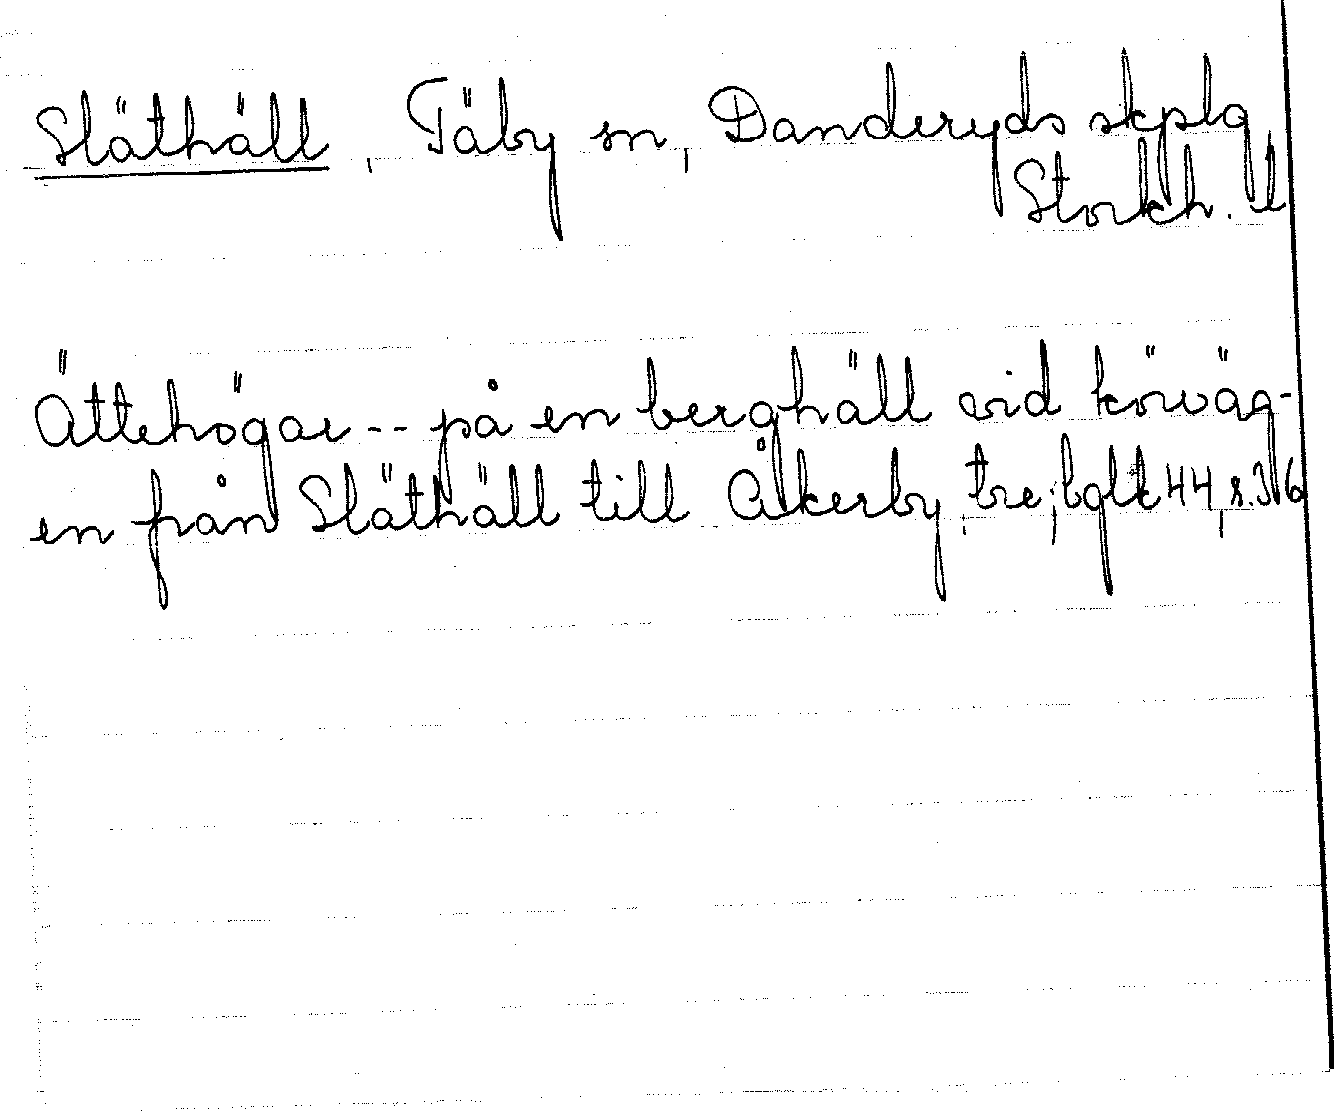 Släthäll, Täby sn, Danderyds skplg,
Stockh. l
Ättehögar -- på en berghäll vid körväg-
en från Släthäll till Åkerby, tre; bglt 44, s. 36